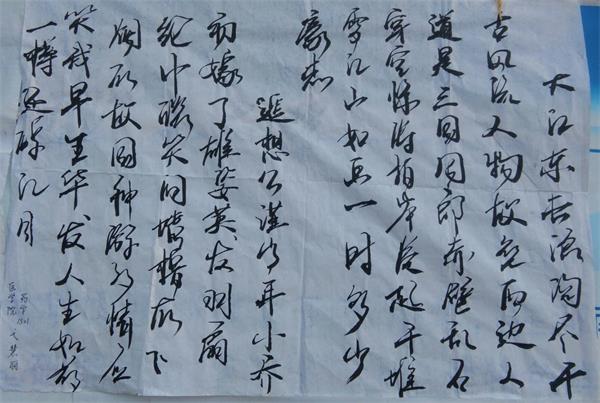 大江东去浪淘尽千
古风流人物故垒西边人
道是三国周郎赤壁乱石
穿空惊涛拍岸卷起千堆
雪江山如画一时多少
豪杰
遥想公瑾当年小乔
初嫁了雄姿英发羽扇
纶巾谈笑间樯橹灰飞
烟灭故国神游多情应
笑我早生华发人生如梦
一樽还酹江月
医学院